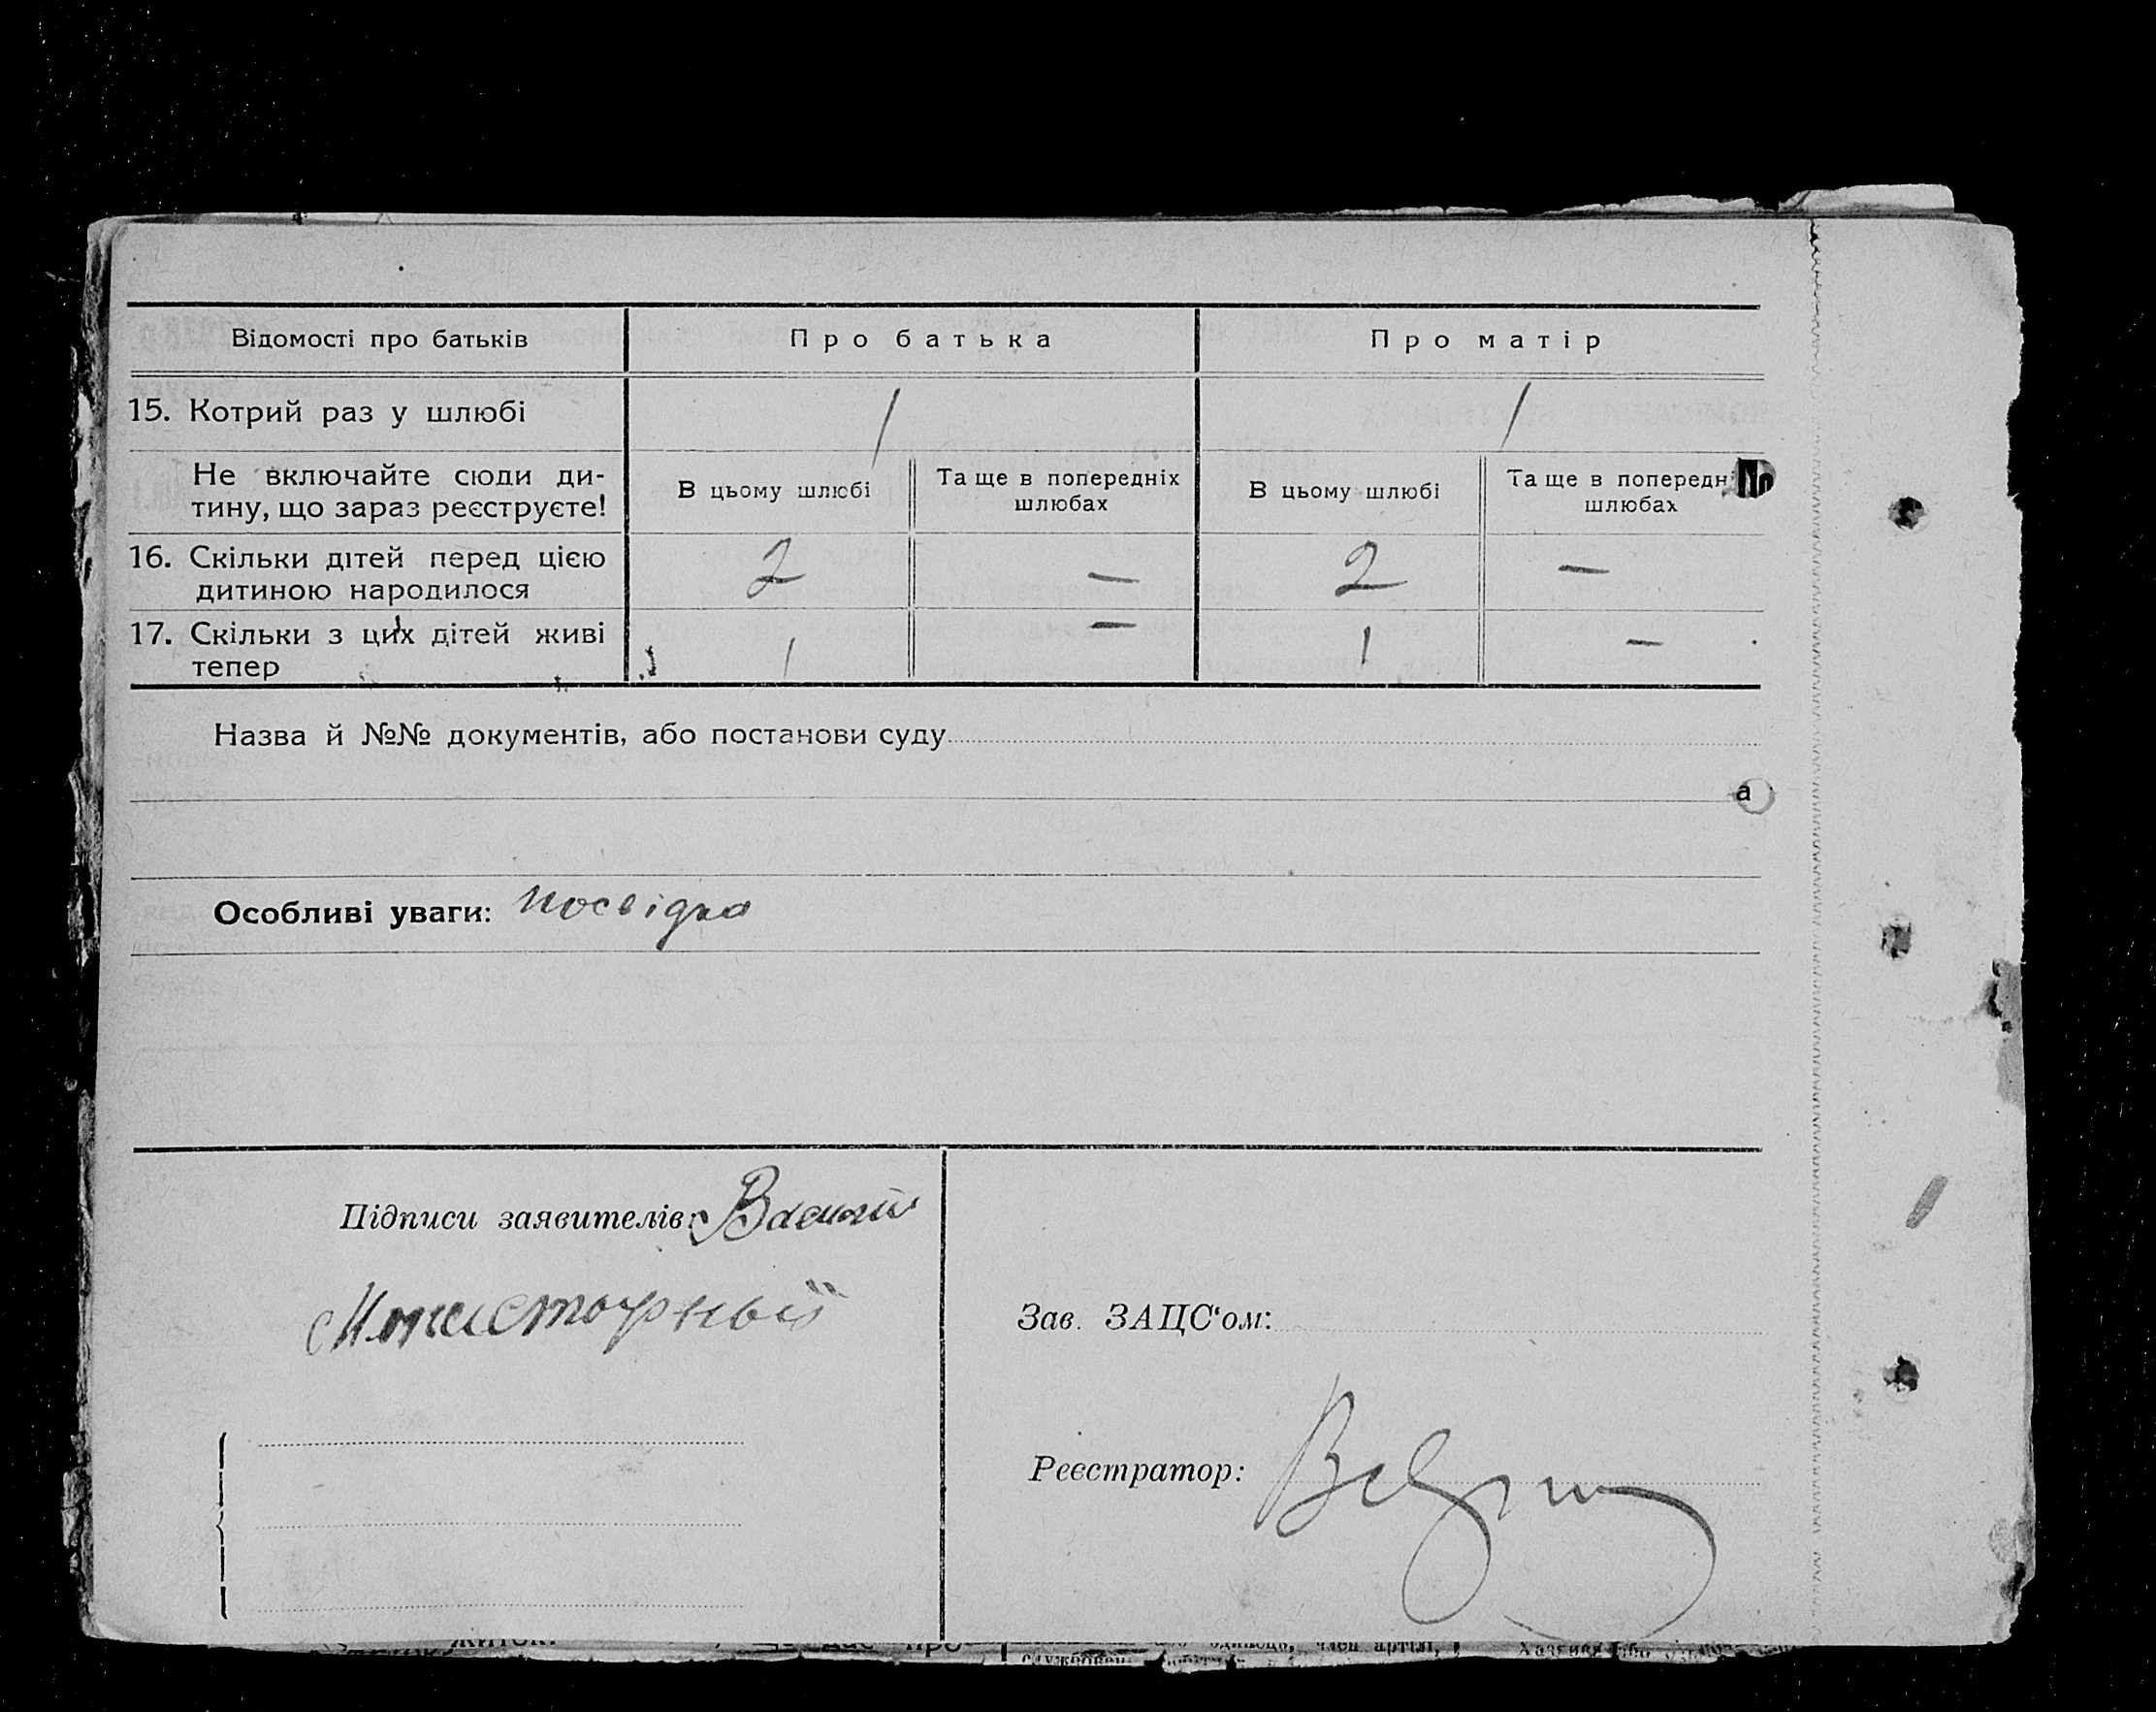 Відомості про батьків
Про батька
Про матір
15. Котрий раз у шлюбі
1
1
Не включайте сюди ди-
тину, що зараз реєструєте!
В цьому шлюбі
Та ще в попередніх
шлюбах
В цьому шлюбі
Та ще в попередн
шлюбах
№
16. Скільки дітей перед цією
дитиною народилося
2
—
2
—
17. Скільки з цих дітей живі
тепер
1
—
1
—
Назва й №№ документів, або постанови суду
а
Особливі уваги: посвідка
Підписи заявителів: Василий
Монастырный
Зав. ЗАЦС‘ом:
Реєстратор: